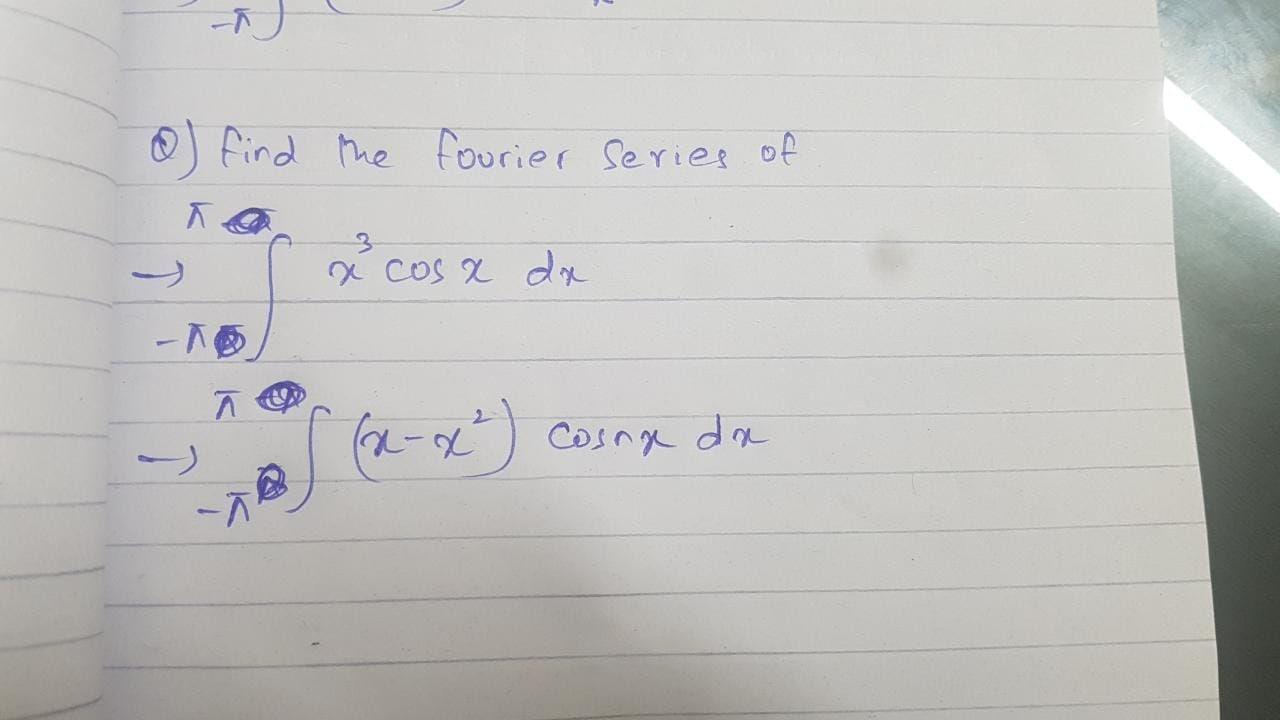 -π
Q) find the fourier series of
→ ∫_{-π}^{π} x³ cos x dx
→ ∫_{-π}^{π} (x-x²) cosnx dx